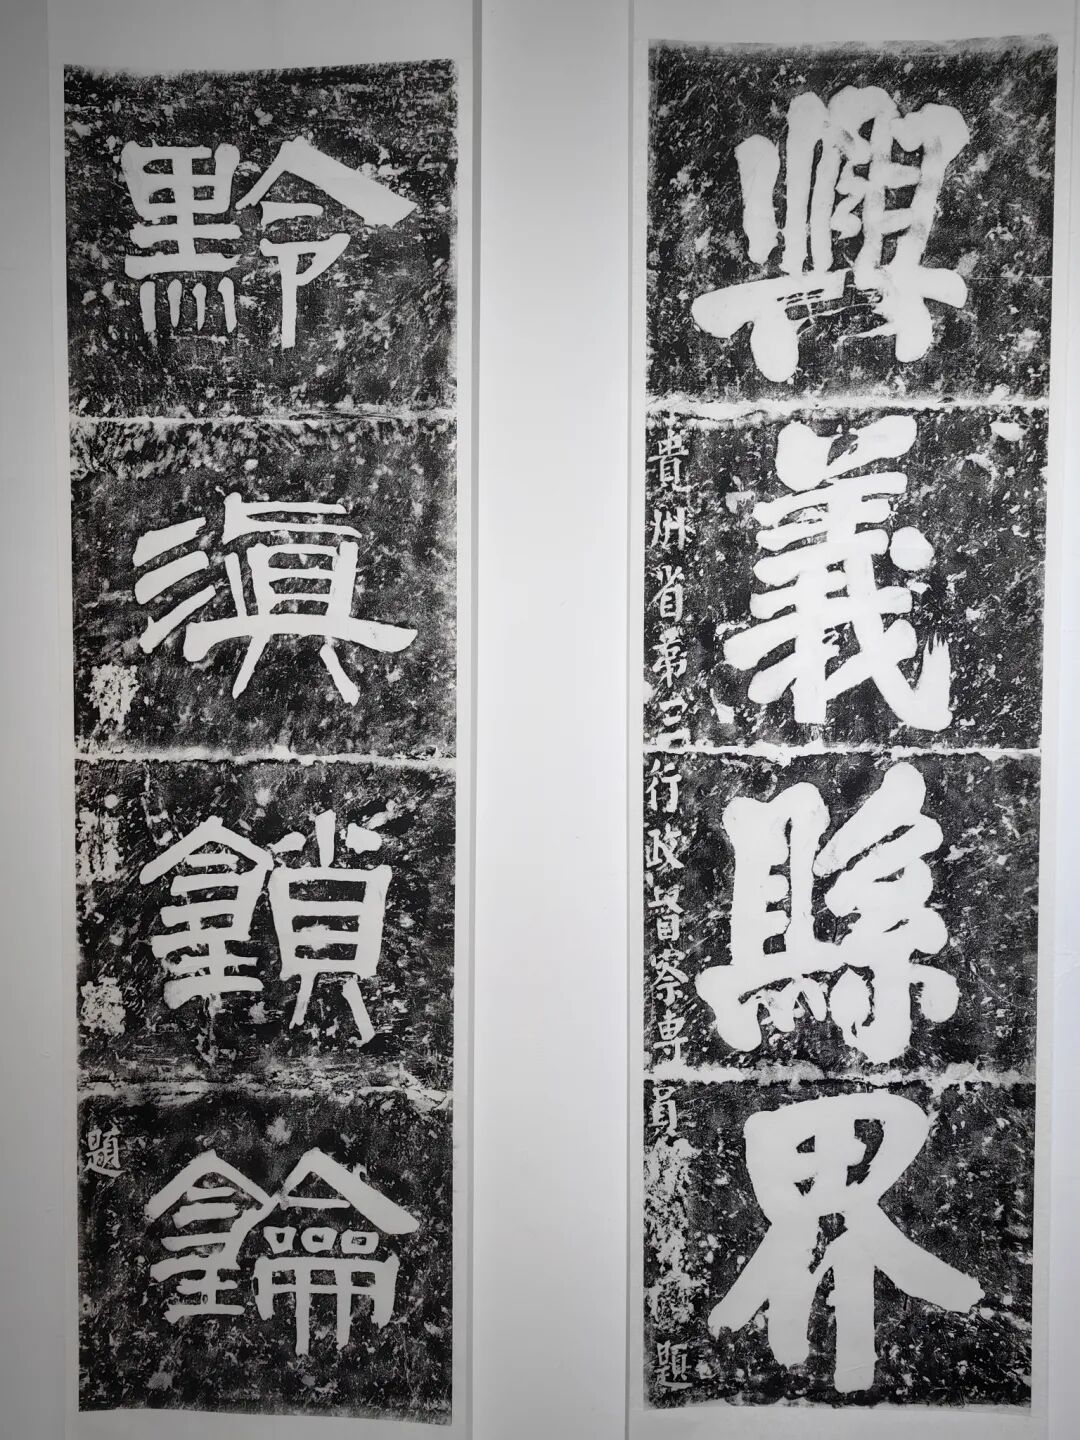 興義縣界
貴州省第三行政督察專員
題
黔滇鎖鑰
題